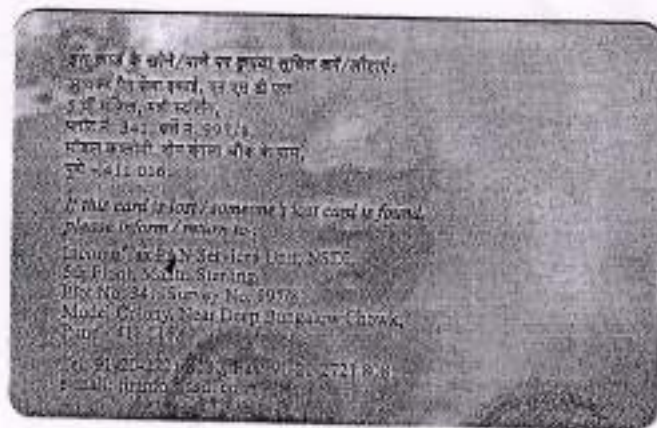 इस कार्ड के खोने/पाने पर कृपया सूचित करें/लौटाएं:
आयकर पैन सेवा इकाई, एन एस डी एल
5 वीं मंजिल, मंत्री स्टर्लिंग,
प्लॉट नं. 341, सर्वे नं. 997/8,
मॉडल कालोनी, दीप बंगला चौक के पास,
पुणे - 411 016.
If this card is lost / someone's lost card is found,
please inform / return to :
Income Tax PAN Services Unit, NSDL
5th Floor, Mantri Sterling,
Plot No. 341, Survey No. 997/8,
Model Colony, Near Deep Bungalow Chowk,
Pune - 411 016.
Tel: 91-20-2721